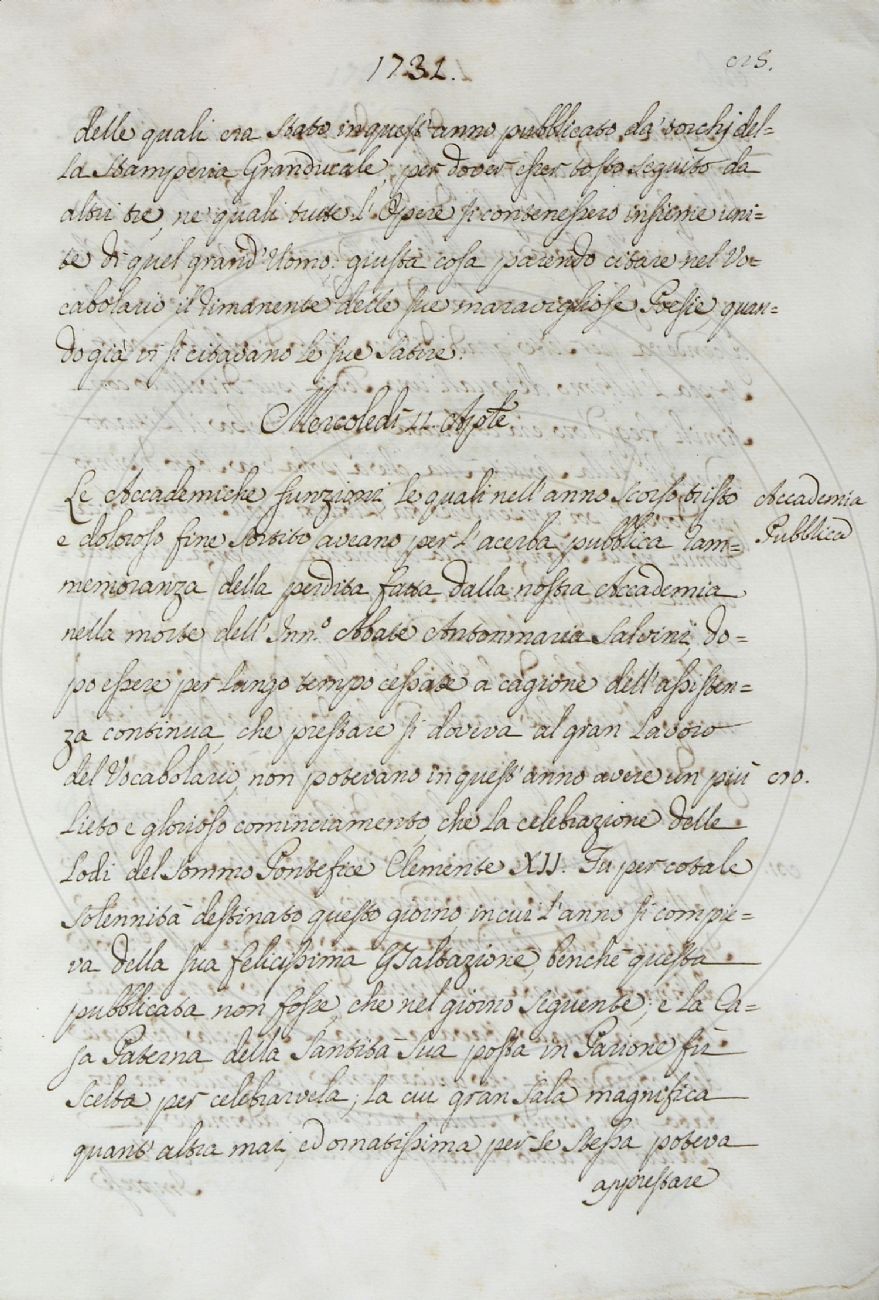 1731.
delle quali era stato in quest'anno pubblicato da' torchj del-
la Stamperia Granducale, per dover esser tosto seguito da
altri tre, ne' quali tutte l'Opere si contenessero insieme uni-
te di quel grand'Uomo: giusta cosa parendo citare nel Vo-
cabolario il rimanente delle sue maravigliose Poesie, quan-
do già vi si citavano le sue Satire.
Mercoledì 11. Aple.
Le Accademiche funzioni le quali nell'anno scorso tristo
e doloroso fine sortito aveano per l'acerba pubblica ram=
memoranza della perdita fatta dalla nostra Accademia
nella morte dell'Inno. Abate Antonmaria Salvini, do=
po essere per lungo tempo cessate a cagione dell'assisten=
za continua, che prestare si doveva al gran Lavoro
del Vocabolario, non potevano in quest'anno avere un più
lieto e glorioso cominciamento, che la celebrazione delle
Lodi del Sommo Pontefice Clemente XII. Fu per cotale
solennità destinato questo giorno in cui l'anno si compie=
va della sua felicissima Esaltazione, benchè questa
pubblicata non fosse, che nel giorno seguente; e la Ca=
sa Paterna della Santità Sua posta in Parione fù
scelta per celebrarvela; la cui gran Sala magnifica
quant'altra mai, ed ornatissima per se stessa poteva
apprestare
Accademia
Pubblica